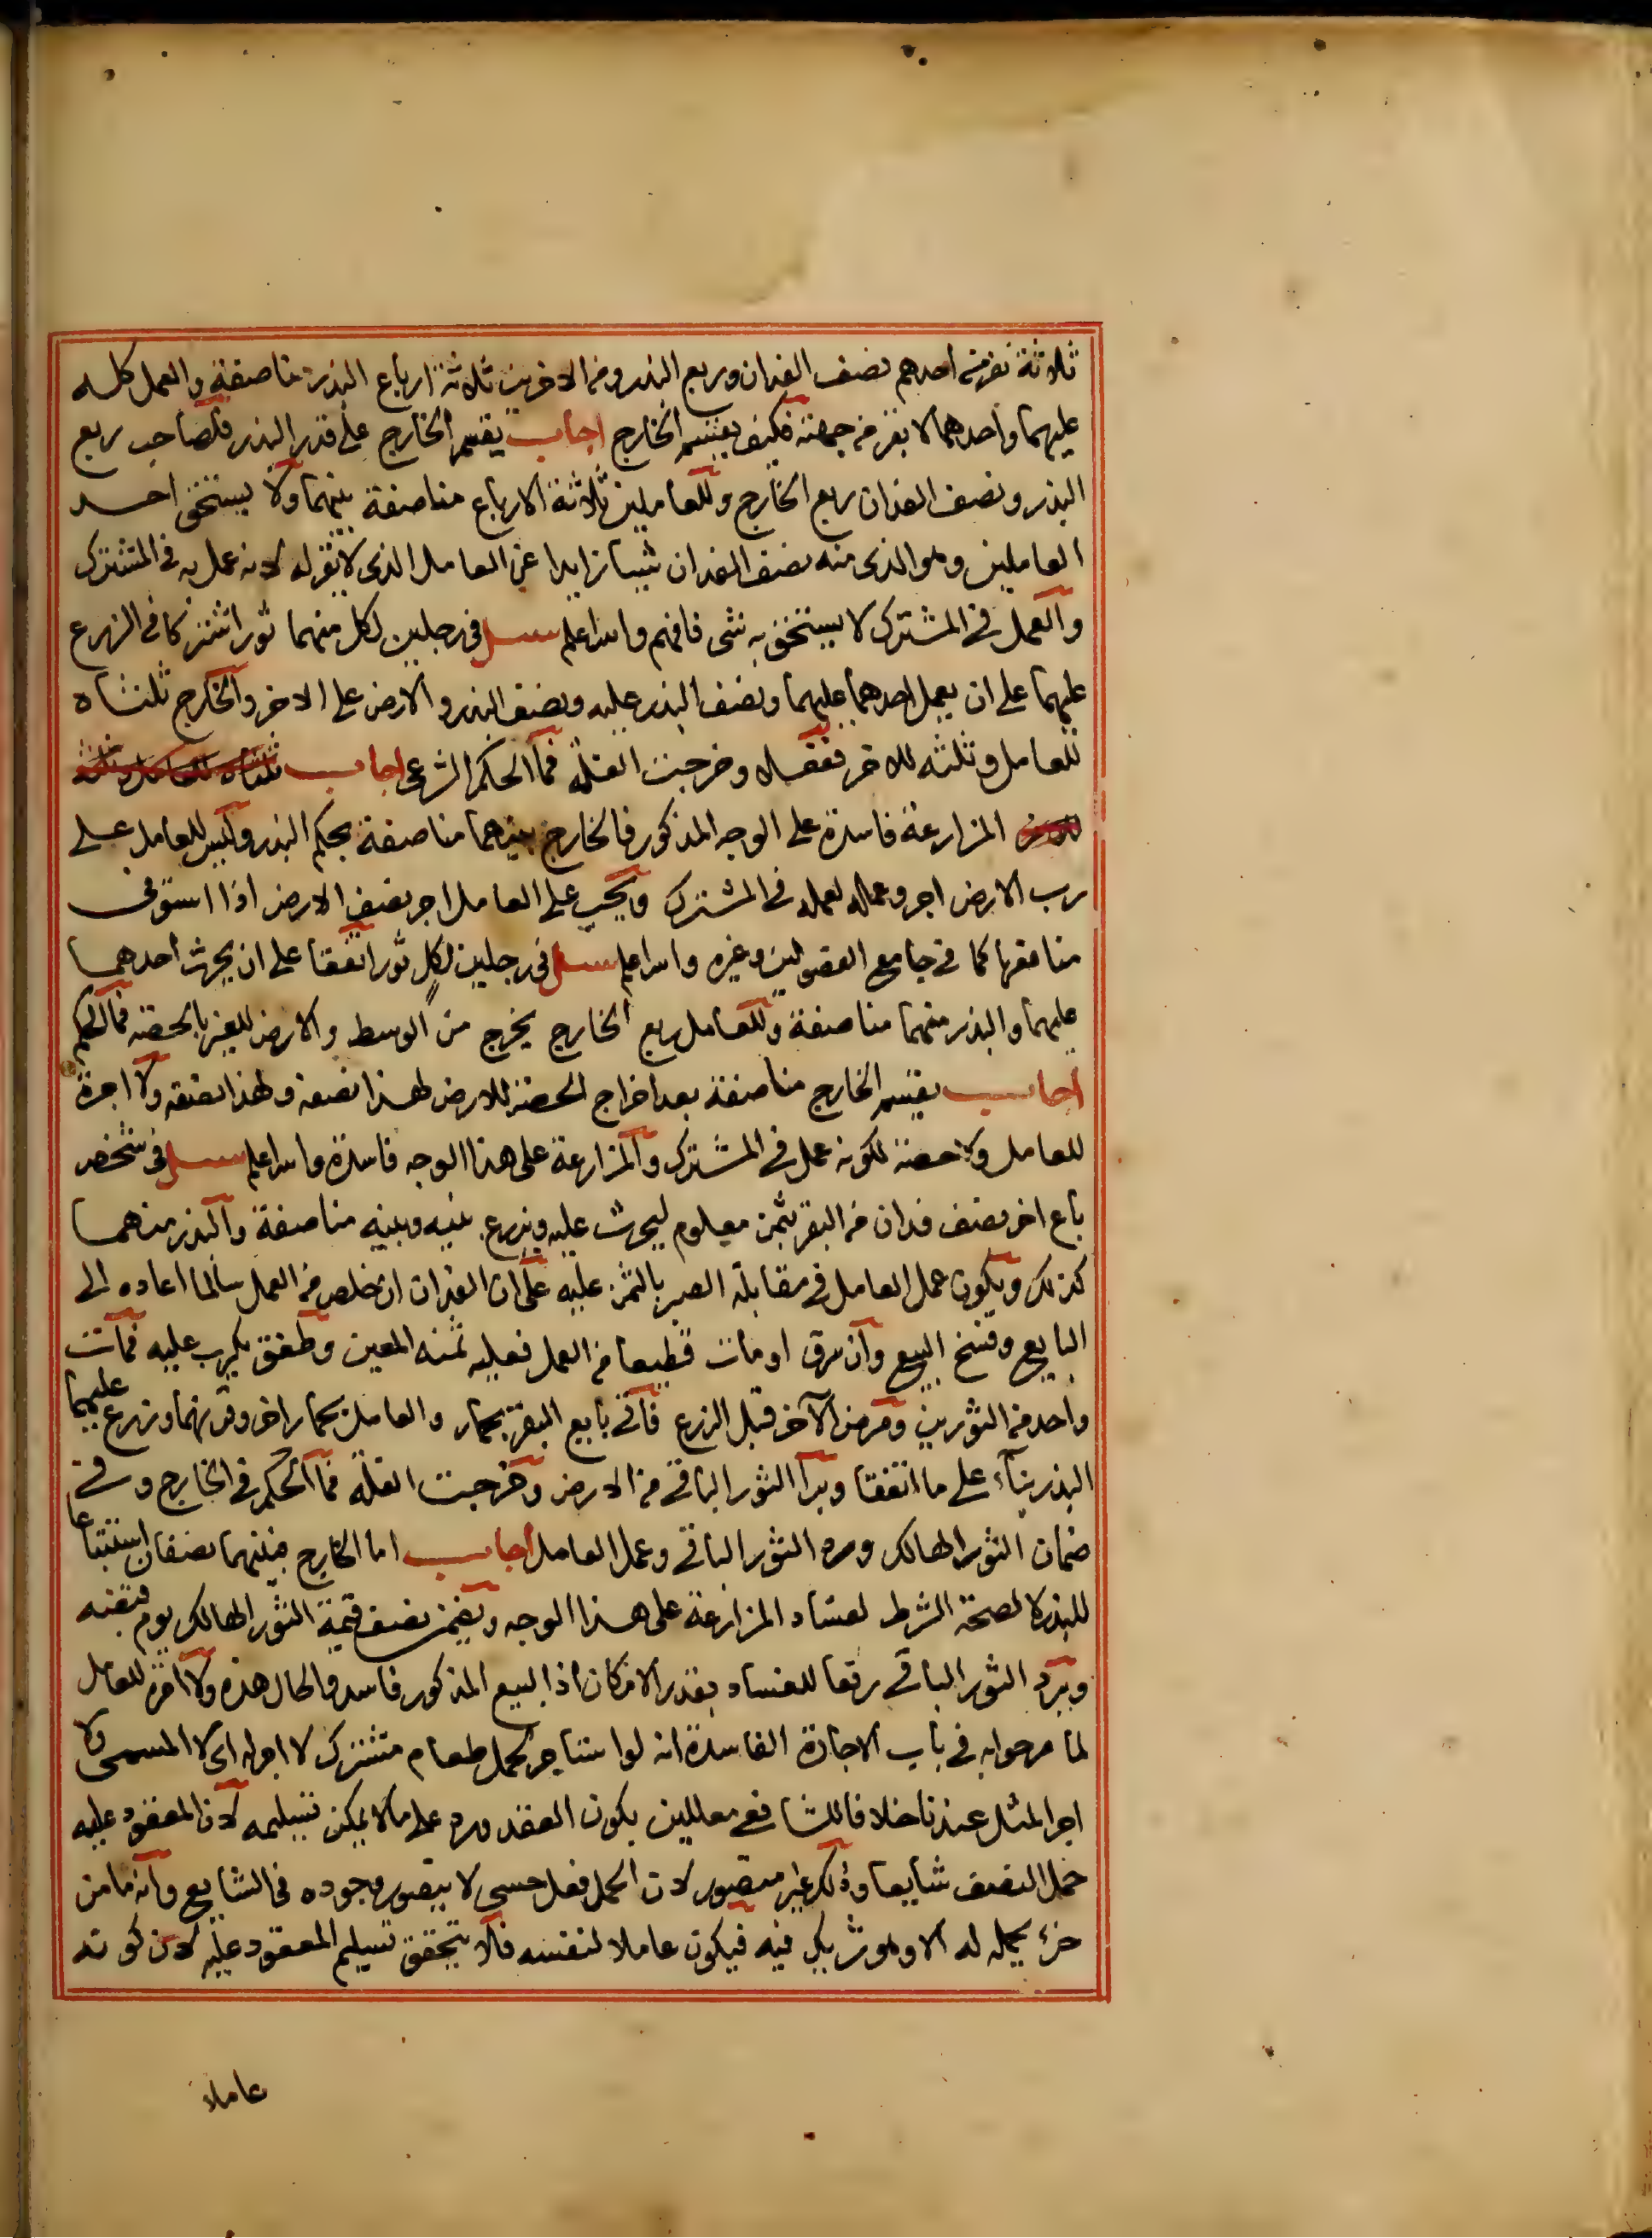 ثلاثة نفر من احدهم نصف الفدان وربع البذر ومن الاخرين ثلاثة ارباع البذر مناصفة والعمل كله
عليهما واحدهما لا بقر من جهته فكيف يقسم الخارج اجاب يقسم الخارج على قدر البذر فلصاحب ربع
البذر ونصف الفدان ربع الخارج وللعاملين ثلاثة الارباع مناصفة بينهما ولا يستحق احد
العاملين وهو الذى منه نصف الفدان شيبا زايدا عن العامل الذى لا بقر له لانه عمل به فى المشترك
والعمل فى المشترك لا يستحق به شى فافهم والله اعلم سئل فى رجلين لكل منهما ثور اشتركا فى الزرع
عليهما على ان يعمل احدهما عليهما ونصف البذر عليه ونصف البذر والارض على الاخر والخارج ثلثاه
للعامل وثلثه للاخر ففعلا وخرجت الغلة فما الحكم الشرعى اجاب ثلثاه للعامل وثلثه
للاخر المزارعة فاسدة على الوجه المذكور فالخارج بينهما مناصفة بحكم البذر وليس للعامل على
رب الارض اجر وعماله لعمله فى المشترك ويجب على العامل اجر نصف الارض اذا استوفى
منافعها كما فى جامع الفصولين وغيره والله اعلم سئل فى رجلين لكل ثور اتفقا على ان يحرث احدهما
عليهما والبذر منهما مناصفة وللعامل ربع الخارج يخرج من الوسط والارض للغير بالحصة فما الحكم
اجاب يقسم الخارج مناصفة بعد اخراج الحصة للارض لهذا نصفه ولهذا نصفه ولا اجرة
للعامل ولا حصة لكونه عمل فى المشترك والمزارعة على هذا الوجه فاسدة والله اعلم سئل فى شخص
باع اخر نصف فدان من البقر بثمن معلوم ليحرث عليه ويزرع بينه وبينه مناصفة والبذر منهما
كذلك ويكون عمل العامل فى مقابلة الصبر بالثمن عليه على ان الفدان ان خلص من العمل سالما اعاده الى
البايع وفسخ البيع وان سرق او مات قطيعا من العمل فعليه ثمنه المعين وطفق يكرب عليه فمات
واحد من الثورين ومرض الآخر قبل الزرع فاتى بايع البقر بحمار والعامل بحمار اخر وقرنهما وزرع عليهما
البذر بناء على ما اتفقا وبرا الثور الباقى من الارض وخرجت الغلة فما الحكم فى الخارج وفى
ضمان الثور الهالك ورد الثور الباقى وعمل العامل اجاب اما الخارج فبينهما نصفان استتباعا
للبذر لا لصحة الشرط لفساد المزارعة على هذا الوجه ويضمن نصف قيمة الثور الهالك يوم قبضه
ويرد الثور الباقى رفعا للفساد بقدر الامكان اذ البيع المذكور فاسد والحال هذه ولا اجر للعامل
لما مر جوابه فى باب الاجارة الفاسدة انه لو استاجر لحمل طعام مشترك لا اجر له اى لا المسمى ولا
اجر المثل عندنا خلافا للشافعى معللين بكون العقد ورد على ما لا يمكن تسليمه لان المعقود عليه
حمل النصف شايعا وذلك غير متصور لان الحمل فعل حسى لا يتصور وجوده فى الشايع وانه ما من
جزء يحمله له الا وهو شريك فيه فيكون عاملا لنفسه فلا يتحقق تسليم المعقود عليه لان كونه
عاملا